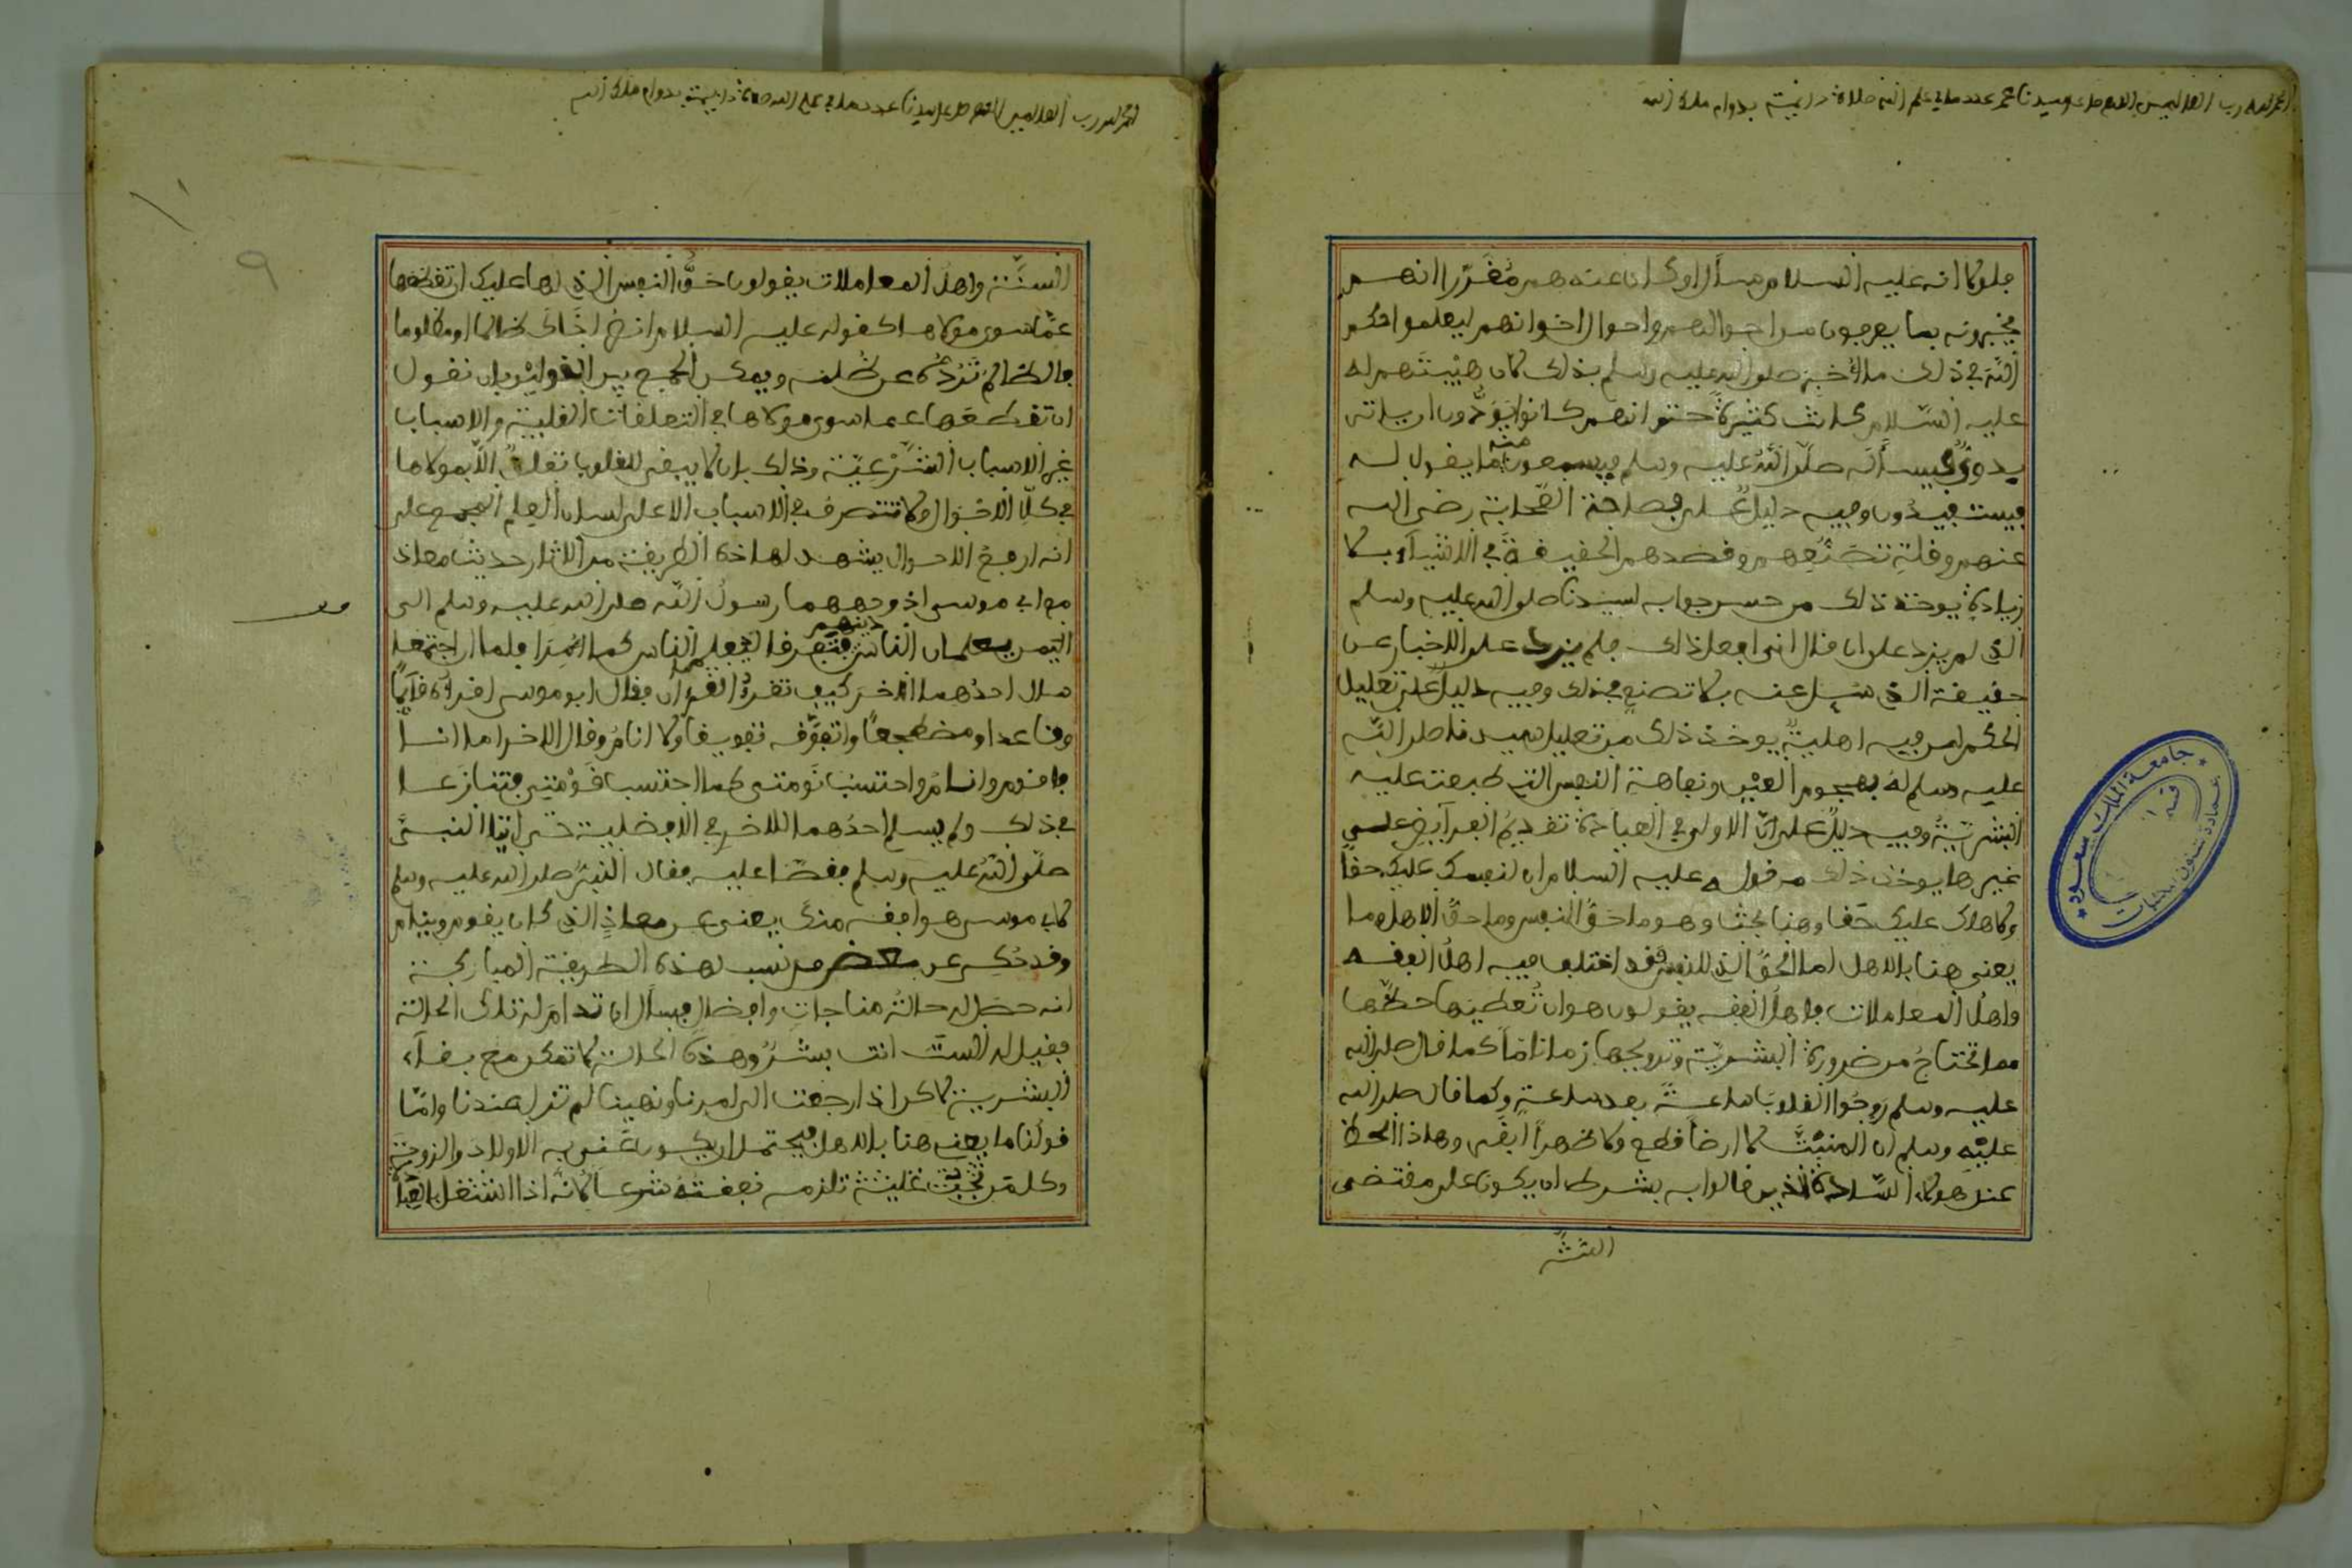 الحمد لله رب العالمين اللهم صل على سيدنا محمد عدد ما في علم الله صلاة دائمة بدوام ملك الله
فلو كان عليه السلام سأل او كان عندهم مقررا انهم
يخبرونه بما يعرفون من احوالهم واحوال اخوانهم ليعلموا حكم
الله في ذلك ما اخبر صلى الله عليه وسلم بذلك كان هيبتهم له
عليه السلام كانت كثيرة حتى انهم كانوا يودون ان ياتي
بدوي فيسأله صلى الله عليه وسلم فيسمعون منه ما يقول له
فيستفيدون وفيه دليل على فصاحة الصحابة رضي الله
عنهم وقلة تصنعهم وقصدهم الحقيقة في الاشياء بلا
زيادة يوخذ ذلك من حسن جوابه لسيدنا صلى الله عليه وسلم
الذي لم يزد على ان قال اني افعل ذلك فلم يزد على الاخبار عن
حقيقة الذي سيل عنه بلا تصنع في ذلك وفيه دليل على تعليل
الحكم لمن فيه اهلية يوخذ ذلك من تعليل سيدنا صلى الله
عليه وسلم له بهجوم العين ونفاهة النفس التي طبعت عليه
البشرية وفيه دليل على ان الاولى في العبادة تقديم الفرايض على
غيرها يوخذ ذلك من قوله عليه السلام ان لنفسك عليك حقا
ولاهلك عليك حقا وهنا بحث وهو ما حق النفس وما حق الاهل وما
يعني هنا بالاهل اما الحق الذي للنفس فقد اختلف فيه اهل الفقه
واهل المعاملات فاهل الفقه يقولون هو ان تعطيها حظها
مما تحتاج من ضرورة البشرية وترويحها زمانا ما كما قال صلى الله
عليه وسلم روحوا القلوب ساعة بعد ساعة وكما قال صلى الله
عليه وسلم ان المنبت لا ارضا قطع ولا ظهرا ابقى وهاذا الحظ
عند هولاء السادة الذين قالوا به بشرط ان يكون على مقتضى
السنة
الحمد لله رب العالمين اللهم صل على سيدنا عدد ما في علم الله صلاة دائمة بدوام ملك الله
٩
السنة واهل المعاملات يقولون حق النفس الذي لها عليك ان تقطعها
عما سوى مولاها كقوله عليه السلام انصر اخاك ظالما او مظلوما
فالظالم تردة عن ظلمه ويمكن الجمع بين القولين بان نقول
ان تقطعها عما سوى مولاها في التعلقات القلبية والاسباب
غير الاسباب الشرعية وذلك بان لا يبقى للقلوب تعلق الا بمولاها
في كل الاحوال ولا تتصرف في الاسباب الا على لسان العلم المجمع على
انه ارفع الاحوال يشهد لهاذه الطريقة من الاثار حديث معاذ
مع ابي موسى اذ وجههما رسول الله صلى الله عليه وسلم الى
اليمن يعلمان الناس دينهم فتفرقا ليعلم الناس كما امرا فلما ان اجتمعا
سال احدهما الاخر كيف تقرا القرءان فقال ابو موسى اقرأه قائما
وقاعدا ومضطجعا واتفوقه تفويقا ولا انام وقال الاخر اما انا
فاقوم وانام واحتسب نومتي كما احتسب قومتي فتنازعا
في ذلك ولم يسلم احدهما للاخر في الافضلية حتى اتيا النبي
صلى الله عليه وسلم فقصا عليه فقال النبي صلى الله عليه وسلم
لابي موسى هو افقه منك يعني عن معاذ الذي كان يقوم وينام
وقد حكي عن بعض من نسب لهذه الطريقة المباركة
انه حصل له حالة مناجات وافضال فسأل ان تدام له تلك الحالة
فقيل له الست انت بشر وهذه الحالة لا تمكن مع بقاء
البشرية لاكن اذا رجعت الى امرنا ونهينا لم تزل عندنا واما
قولنا ما يعني هنا بالاهل فيحتمل ان يكون عنى به الاولاد والزوجة
وكل من تلزمه نفقته شرعا لانه اذا اشتغل